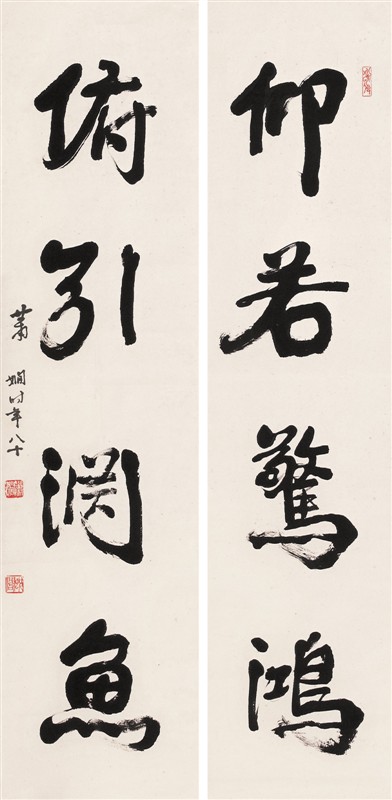 仰若驚鴻
俯引淵魚
萧嫻时年八十